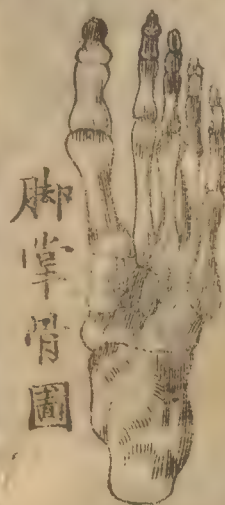 脚掌骨圖